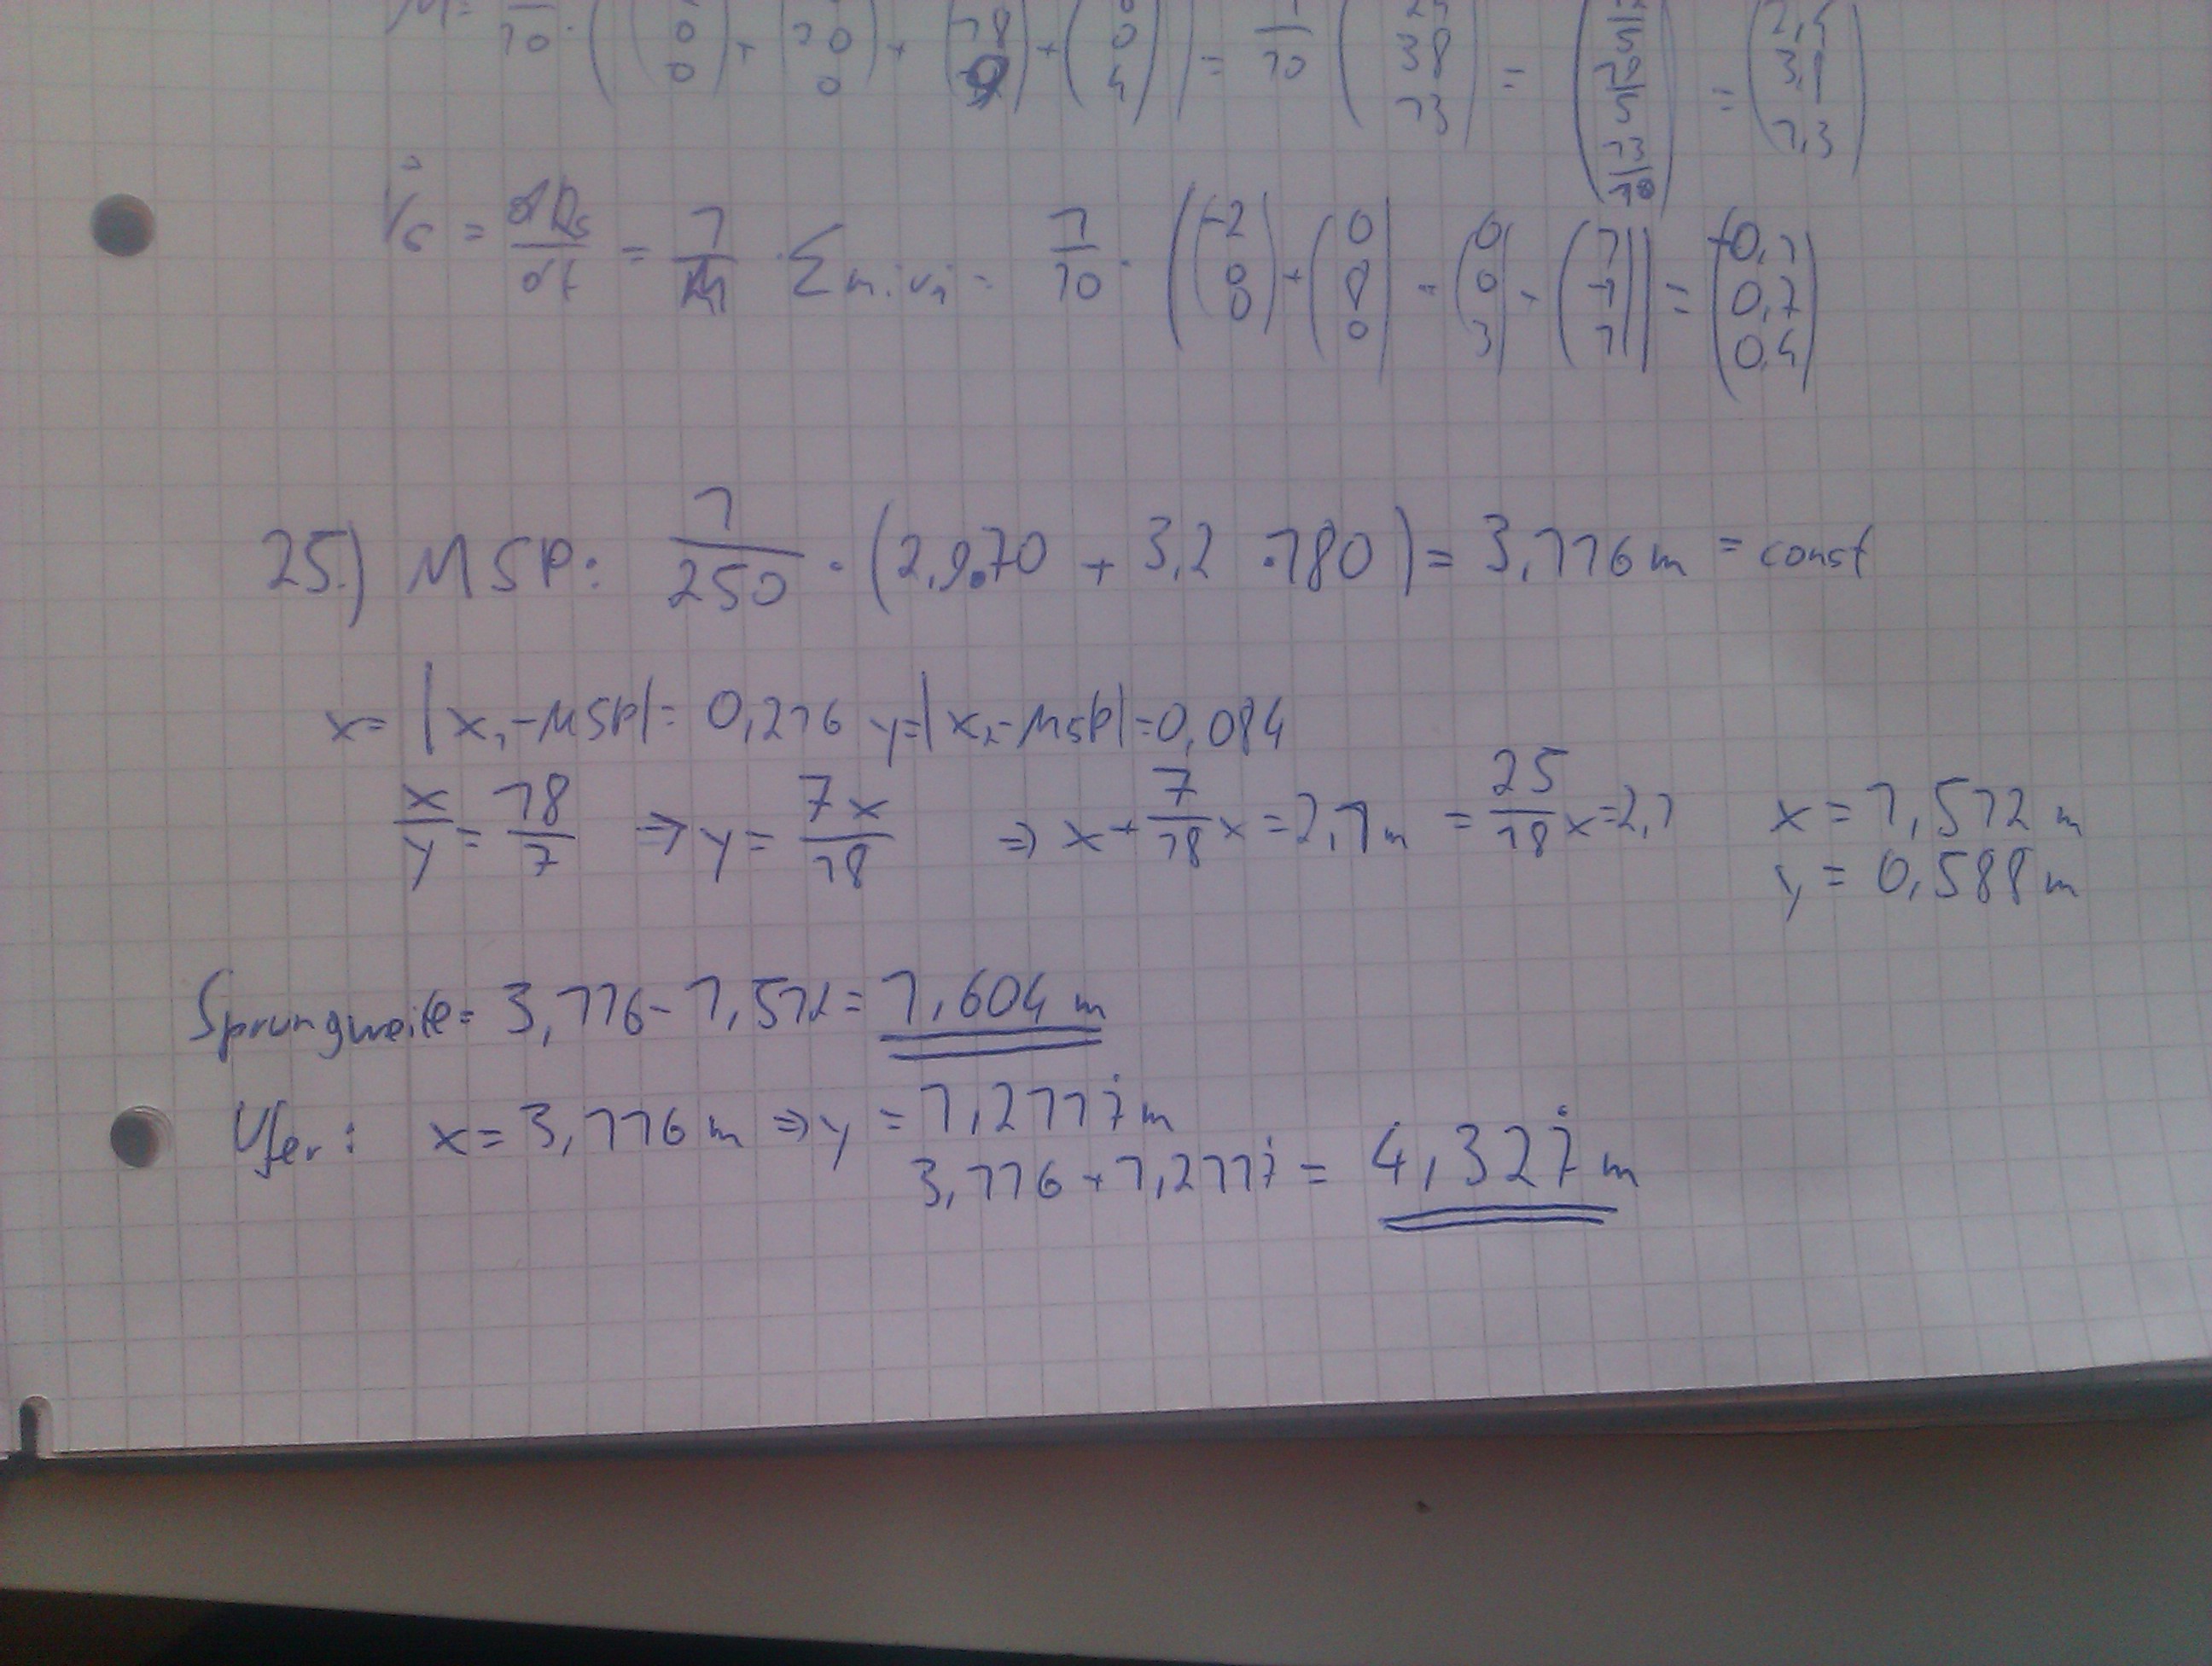 M = 1/10 · ((0 0) + (20 0) + (18 0) + (0 4)) = 1/10 (38 13) = (19/5 13/10) = (2,4 3,8 1,3)
Vs = dRs/dt = 1/M · Σ mi·vi = 1/10 · ((-2 0 0) + (0 8 0) + (0 0 3) + (1 -1 1)) = (-0,1 0,7 0,4)
25.) MSP: 1/250 · (2,9·70 + 3,2 ·180) = 3,116 m = const
x = |x₁-MSP| = 0,216 y=|x₂-MSP|=0,084
x/y = 18/7 ⇒ y = 7x/18 ⇒ x + 7/18 x = 2,1 m = 25/18 x = 2,1 x = 1,512 m
y = 0,588 m
Sprungweite = 3,116 - 1,512 = 1,604 m
Ufer: x = 3,116 m ⇒ y = 1,2117̇ m
3,116 + 1,2117̇ = 4,327̇ m